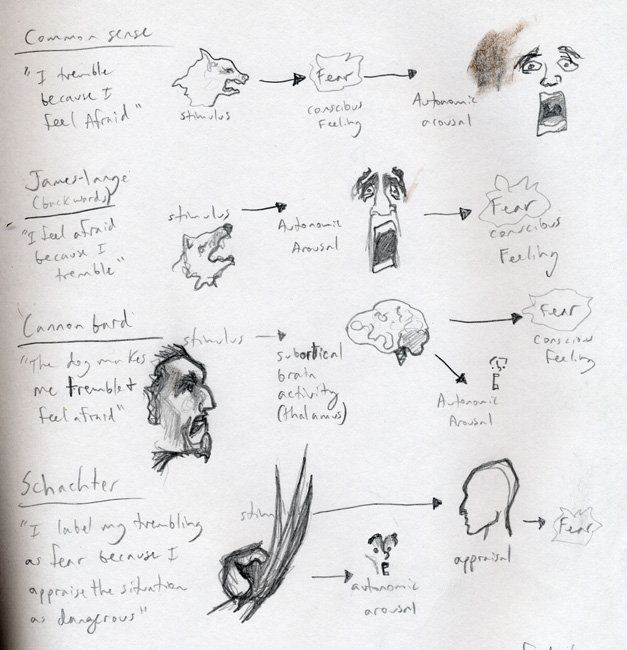 Common sense
"I tremble
because I
feel Afraid"
stimulus
Fear
conscious
Feeling
Autonomic
arousal
James-Lange
(backwards)
"I feel afraid
because I
tremble"
stimulus
Autonomic
Arousal
Fear
conscious
Feeling
Cannon bard
"The dog makes
me tremble+
feel afraid"
stimulus
subcortical
brain
activity
(thalamus)
Fear
conscious
Feeling
Autonomic
Arousal
Schachter
"I label my trembling
as fear because I
appraise the situation
as dangerous"
autonomic
arousal
appraisal
Fear